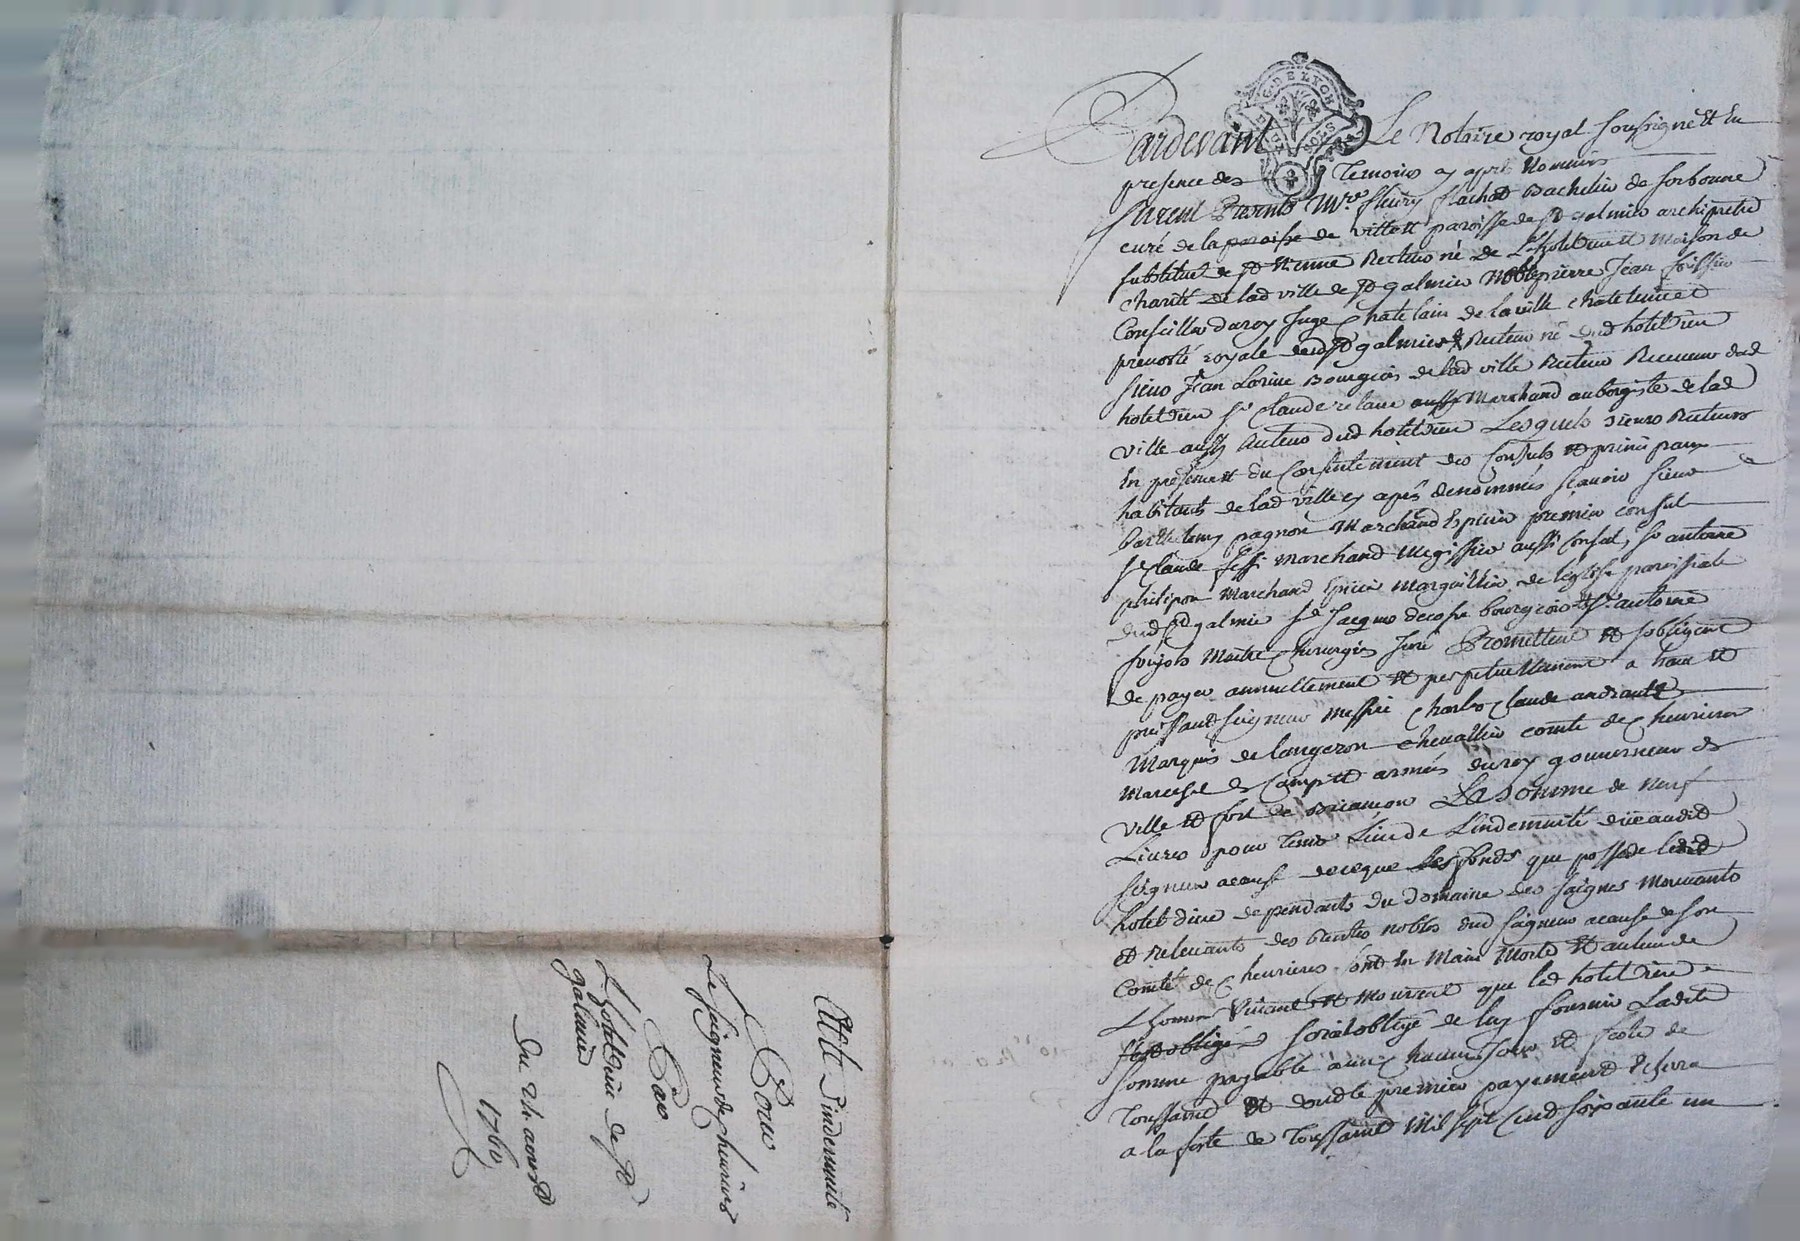 G. DE LYON
DEUX SOLS
Pardevant Le Notaire royal soussigné et En
presence des Temoins cy aprés Nommés
furent Presents Mre. fleury flachat Bachelier de sorbonne
curé de la paroisse de ville et paroisse de St galmier archipretre
substitue de St Etienne Recteur né De L'hoteldieu et Maison de
charité de lad ville de St galmier Noble pierre Jean
Conseiller du roy Juge Chatelain de la ville chatelenie et
prevosté royale dud St galmier & Recteur né dud hotel dieu
sieur Jean Lorine Bourgeois de lad ville Recteur Receveur dud
hotel dieu sr Claude relave aussy Marchand aubergiste de lad
ville aussy Recteur dud hotel dieu Lesquels sieurs Recteurs
En présence et du Consentement des Consuls et principaux
habitants de lad ville cy aprés denommés scavoir sieur
barthelemy pagnon Marchand Epicier premier consul
sr Claude Marchand Megissier aussi consul, sr antoine
philipon Marchand Epicier Marguillier de léglise paroissiale
dud St galmier sr Jacques decose bourgeois et sr antoine
Maitre Chirurgien Juré Promettent et sobligent
de payer annuellement et perpetuellement a haut et
puissant seigneur Messire Charles Claude andrault
Marquis de langeron chevallier comte de Chevrieres
Marechal de Camp et armées du roy gouverneur de
ville et fort de Briancon La somme de Neuf
Livres pour tenir Lieu de L'indemnité düe audit
seigneur acause de ce que les fonds que possede ledit
hotel dieu dependants du domaine des saignes Mouvants
et Relevants des Rentes nobles dud seigneur acause de son
Comté de Chevrieres sont En Main Morte et au lieu de
L'homme Vivant et Mourant que led hotel dieu
seroit obligé de luy fournir Ladite
somme payable a un Chacun Jour et feste de
Toussaint et dont le premier payement Echera
a la feste de Toussaint Mil sept Cent soixante un
Acte d'indemnité
Pour
Le seigneur de chevrieres
Par
L'hotel Dieu de St
galmier
Du 24 aoust
1760